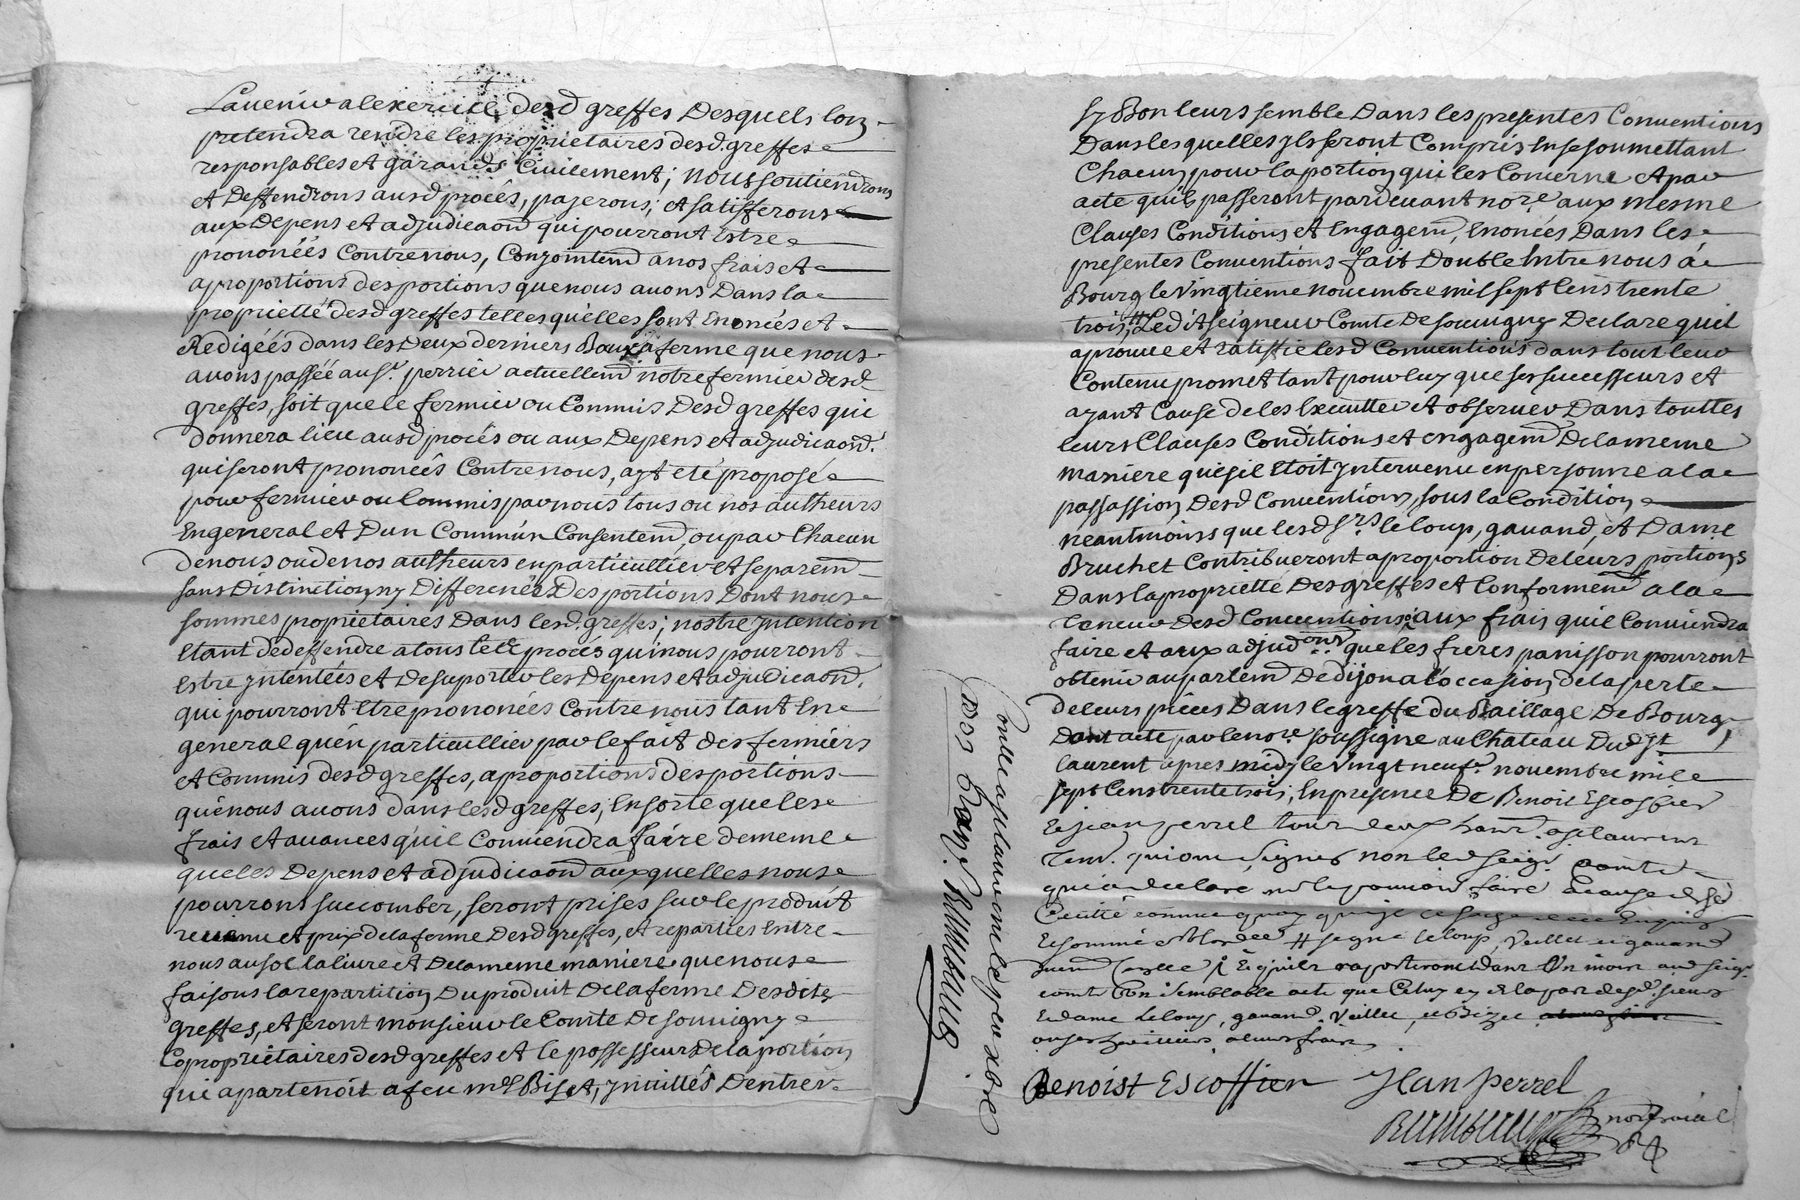 Lavenir a lexercice desd greffes Desquels lon
pretendra rendre les proprietaires desd. greffes
responsables et garands Civilement; nous soutiendrons
et Deffendrons ausd procés, payerons, et satisfferons
aux Depens et adjudicaons qui pourront Estre
prononéés Contre nous, Conjointemt a nos frais et
a proportions des portions que nous avons Dans la
proprietté desd greffes telles quélles sont Enonéés et
Redigéés dans les Deux derniers Baux a ferme que nous
avons passéé au sr. perrier actuellemt notre fermier desd
greffes, soit que le fermier ou Commis Desd greffes qui
donnera lieu ausd procés ou aux Depens et adjudicaons
qui seront prononéés Contre nous, ayt eté proposé
pour fermier ou Commis par nous tous ou nos autheurs
En general et Dun Commún Consentemt, ou par Chacun
de nous ou de nos autheurs en particullier et separemt
sans Distinction ny Differenées Des portions Dont nous
sommes propriétaires Dans lesd. greffes; nostre Jntention
Etant de deffendre a tous les procés qui nous pourront
Estre jntentéés et de suporter les Depens et adjudicaons
qui pourront Etre prononéés Contre nous tant En
general qu'en particullier par le fait des fermiers
et Commis desd greffes, a proportions des portions
que nous avons dans lesd greffes, En sorte que les
frais et avances qu'il Conviendra faire de meme
que les Depens et adjudicaons aux quelles nous
pourrons succomber, seront prises sur le produit
revenu et prix de la ferme Desd greffes, et reparties Entre
nous au sol la livre et De la meme maniere que nous
faisons la repartition Du produit De la ferme Desdits
greffes, et seront monsieur le Comte De souvigny
Coproprietaires desd greffes et le possesseur de la portion
qui apartenoit a feu mr Biset, jnvittés D'entrer
sy Bon leurs semble Dans les presentes Conventions
Dans les quelles jls seront Compris En se soumettant
Chacun pour la portion qui les Concerne et par
acte quils passeront pardevant nore. aux mesme
Clauses Conditions et Engagemt, Enonéés Dans les
presentes Conventions fait Double Entre nous a
Bourg le vingtieme novembre mil sept Cens trente
trois, # Ledit seigneur Comte De souvigny Declare quil
aprouve et ratiffie lesd Conventions dans tout leur
Contenu promettant pour luy que ses successeurs et
ayant Cause de les Executter et observer Dans touttes
leurs Clauses Conditions et engagemt De la meme
maniere que sil Etoit jntervenu en personne a la
passassion Desd Conventions, sous la Condition
neantmoins que lesd srs le loup, gavand, et Dame
Bruchet Contribueront a proportion De leurs portions
Dans la proprietté Des greffes et Conformemt a la
teneur Desd Conventions, aux frais quil Conviendra
faire et aux adjudons que les freres panisson pourront
obtenir au parlemt De dijon a l'occasion de la perte
de leurs piéces Dans le greffe du Baillage De Bourg,
Dont acte par le nore. soussigné au Chateau Dud st
laurent apres midy le vingt neufe. novembre mil
sept Cens trente trois, En presence De Benoit Escoffier
Et jean perrel tous deux habit. a st laurent
tem. qui ont signés non led seigr Comte
qui a declaré ne le pouvoir faire a cause de sa
Cecitté comme
# signé le loup, Veillet et gavand
raporteront dans un mois aud seigr
comte Un semblable acte que Celuy cy de la part desd. sieurs
Et dame le loup, gavand, Veillet,
a leurs frais
Benoist Escoffier Jean perrel
nore Roial